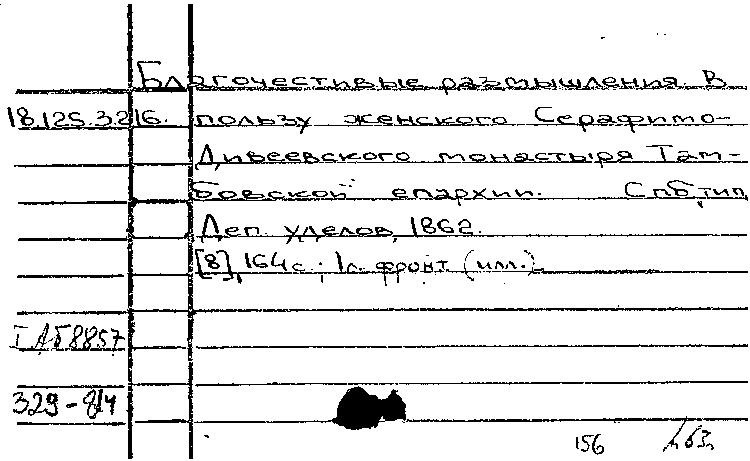 Благочестивые размышления. В
18.125.3.216. пользу женского Серафимо-
Дивеевского монастыря Там-
бовской епархии. Спб, тип.
Деп. уделов, 1862.
[8], 164 с.; 1 л. фронт. (илл.).
I АБ8857
329-8/4
156